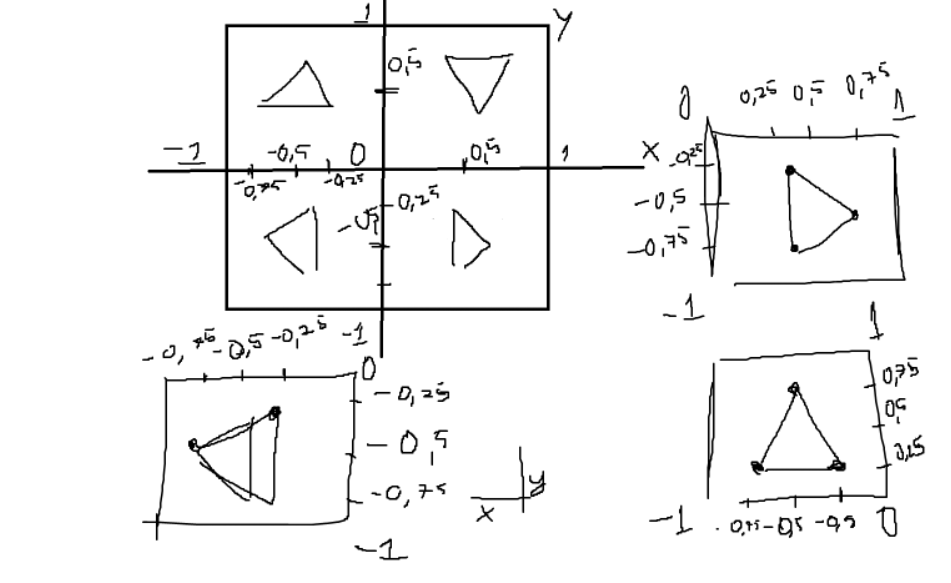 1
y
0,5
-1
-0,5
0
0,5
1
x
-0,75
-0,25
0,25
-0,5
-1
0
0,25 0,5 0,75
1
-0,25
-0,5
-0,75
-1
-0,75 -0,5 -0,25
0
-0,25
-0,5
-0,75
-1
x
y
1
0,75
0,5
0,25
-1
-0,5
0